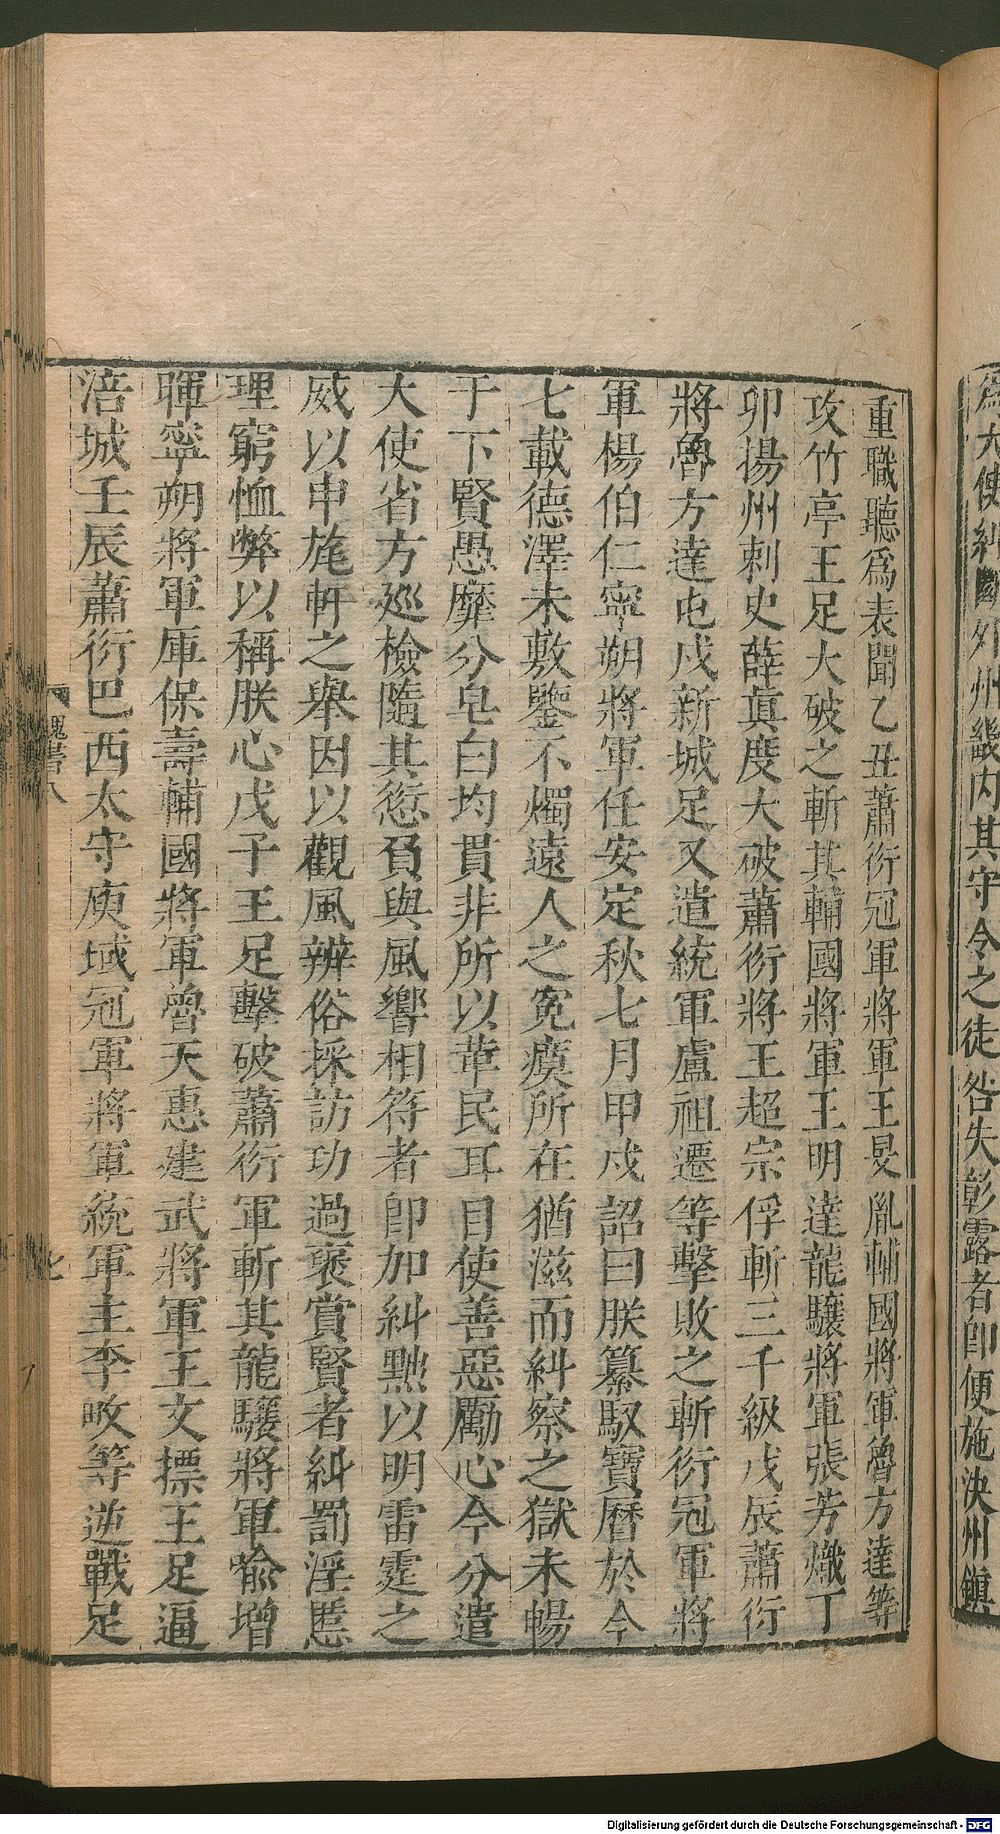 爲大使糾𮦀外州畿内其守令之徒咎失彰露者即便施決州鎮
重職聽爲表聞乙丑蕭衍冠軍將軍王旻胤輔國將軍魯方達等
攻竹亭王足大破之斬其輔國將軍王明達龍驤將軍張芳熾丁
卯揚州刺史薛真度大破蕭衍將王超宗俘斬三千級戊辰蕭衍
將魯方達屯戍新城足又遣統軍盧祖遷等擊敗之斬衍冠軍將
軍楊伯仁寧朔將軍任安定秋七月甲戌詔曰朕纂馭寶曆於今
七載德澤未敷鑒不燭遠人之冤瘼所在猶滋而糾察之獄未暢
于下賢愚靡分皂白均貫非所以革民耳目使善惡勵心今分遣
大使省方巡檢隨其愆負與風響相符者即加糾黜以明雷霆之
威以申旄軒之舉因以觀風辨俗採訪功過褒賞賢者糾罰淫慝
理窮恤弊以稱朕心戊子王足擊破蕭衍軍斬其龍驤將軍喻增
暉寧朔將軍庫保壽輔國將軍魯天惠建武將軍王文摽王足逼
涪城壬辰蕭衍巴西太守庾域冠軍將軍統軍主李畋等逆戰足
魏書八
七
Digitalisierung gefördert durch die Deutsche Forschungsgemeinschaft - DFG